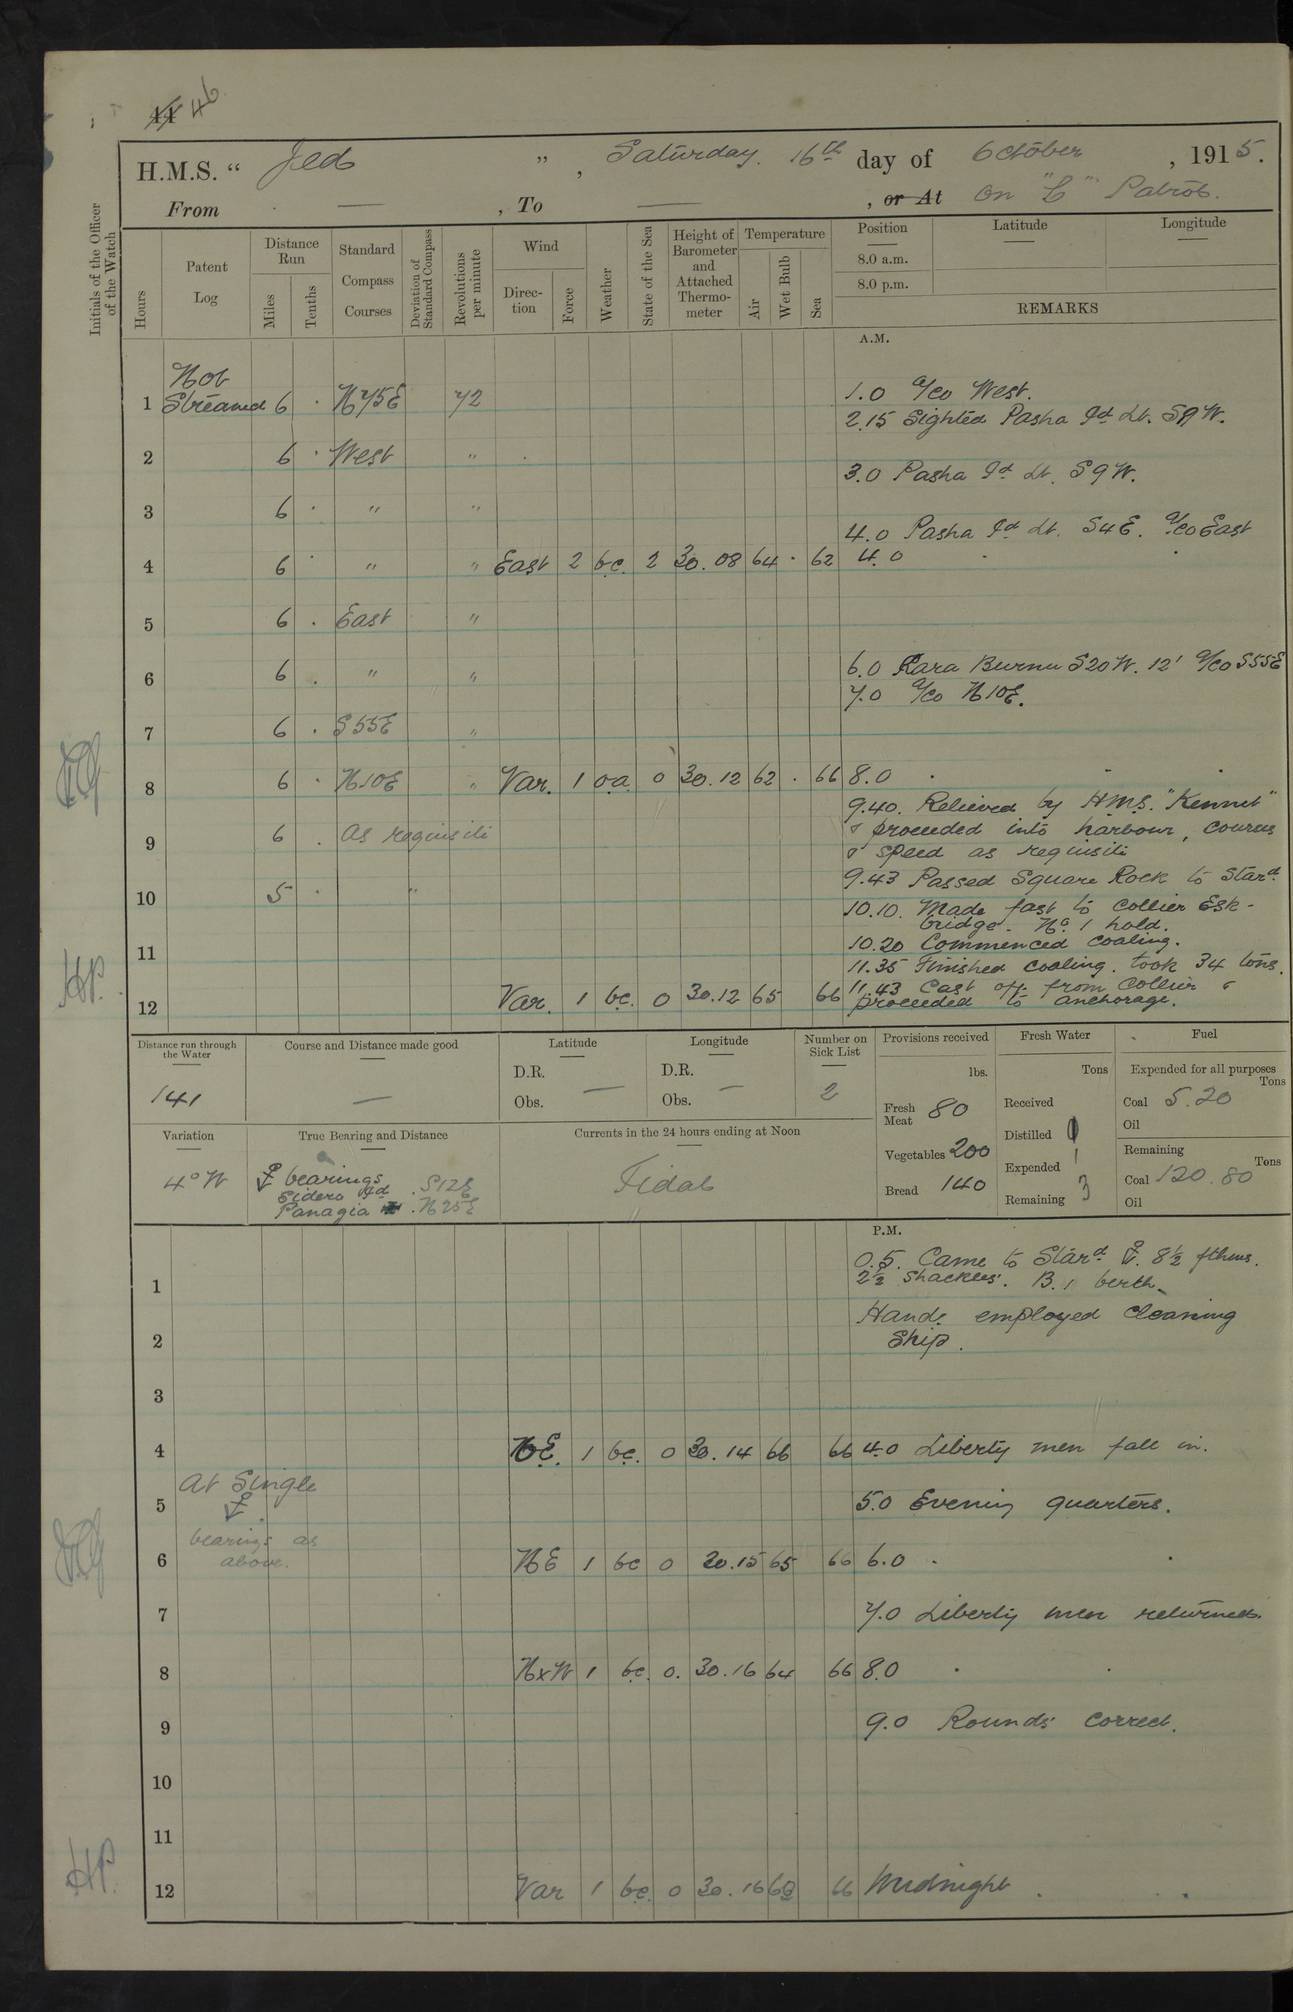 44 46
H.M.S. “ Jed ” , Saturday. 16th day of October , 1915.
From — , To — , or At On "C" Patrol.
Initials of the Officer of the Watch
Hours
Patent Log
Distance Run
Miles
Tenths
Standard Compass Courses
Deviation of Standard Compass
Revolutions per minute
Wind
Direction
Force
Weather
State of the Sea
Height of Barometer and Attached Thermometer
Temperature
Air
Wet Bulb
Sea
Position
8.0 a.m.
8.0 p.m.
Latitude
Longitude
REMARKS
A.M.
Not
1 Streamed 6 . N75E 72 1.0 a/co West.
2.15 Sighted Pasha Id Lt. S9W.
2 6 . West "
3.0 Pasha Id Lt. S9W.
3 6 . " "
4.0 Pasha Id Lt. S4E. a/co East
4 6 . " " East 2 bc. 2 30.08 64 . 62 4.0 . .
5 6 . East "
6 6 . " " 6.0 Kara Burnu S20W. 12' a/co S55E
7.0 a/co N10E.
7 6 . S55E "
8 6 . N10E " Var. 1 oa. 0 30.12 62 . 66 8.0 . . .
9.40. Relieved by HMS. "Kennet"
9 6 . As requisite & proceeded into harbour, courses
& speed as requisite
9.43 Passed Square Rock to Stard.
10 5 . " 10.10. Made fast to Collier Esk-
bridge. No. 1 hold.
10.20 Commenced coaling.
11 11.35 Finished coaling. took 34 tons.
HP. 11.43 Cast off from Collier &
12 Var. 1 bc. 0 30.12 65 66 proceeded to anchorage.
Distance run through the Water
141
Course and Distance made good
—
Latitude
D.R.
Obs. —
Longitude
D.R.
Obs. —
Number on Sick List
2
Provisions received
lbs.
Fresh Meat 80
Vegetables 200
Bread 140
Fresh Water
Tons
Received
Distilled 0
Expended 1
Remaining 3
Fuel
Expended for all purposes
Tons
Coal 5.20
Oil
Remaining
Tons
Coal 120.80
Oil
Variation
4°W
True Bearing and Distance
⚓ bearings
Sidero Id . S12E
Panagia . N25E
Currents in the 24 hours ending at Noon
Tidal
P.M.
0.5. Came to Stard ⚓. 8½ fthms.
1 2½ shackles. B.1 berth.
Hands employed cleaning
2 Ship.
3
4 NE. 1 bc. 0 30.14 66 66 4.0 Liberty men fall in.
At Single
5 ⚓ 5.0 Evening quarters.
bearings as
6 above. NE 1 bc 0 30.15 65 66 6.0 . .
7 7.0 Liberty men returned.
8 NxW 1 bc. 0. 30.16 64 66 8.0 . .
9 9.0 Rounds correct.
10
11
HP.
12 Var 1 bc. 0 30.16 63 66 Midnight . .